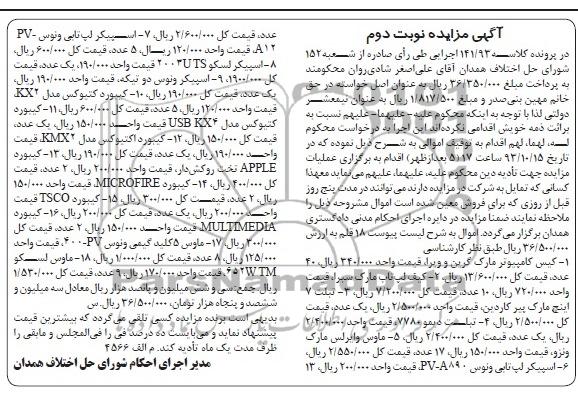 آگهی مزایده نوبت دوم
در پرونده کلاسه ۱۴۱/۹۳ اجرایی طی رأی صادره از شعبه ۱۵۲
شورای حل اختلاف همدان آقای علی‌اصغر شادی‌روان محکومند
به پرداخت مبلغ ۳۶/۳۵۰/۰۰۰ ریال به عنوان اصل خواسته در حق
خانم مهین بنی‌صدر و مبلغ ۱/۸۱۷/۵۰۰ ریال به عنوان نیم‌عشر
دولتی لذا با توجه به اینکه محکوم علیه- علیهما- علیهم نسبت به
برائت ذمه خویش اقدامی نکرده‌اند این اجرا به درخواست محکوم
له، لهما، لهم اقدام به توقیف اموالی به شرح ذیل نموده که در
تاریخ ۹۳/۱۰/۱۵ ساعت ۱۷ الی ۵ بعدازظهر) اقدام به برگزاری عملیات
مزایده جهت تأدیه دین محکوم علیه، علیهما، علیهم می‌نماید معهذا
کسانی که تمایل به شرکت در مزایده دارند می‌توانند در مدت پنج روز
قبل از روزی که برای فروش معین شده است اموال مشروحه ذیل را
ملاحظه نمایند ضمنا مزایده در دایره اجرای احکام مدنی دادگستری
همدان برگزار می‌گردد. اموال به شرح لیست پیوست ۱۸ قلم به ارزش
۳۶/۵۰۰/۰۰۰ ریال طبق نظر کارشناسی
۱- کیس کامپیوتر مارک گرین و ویرا، قیمت واحد ۳۴۰/۰۰۰ ریال، ۴۰
عدد، قیمت کل ۱۳/۶۰۰/۰۰۰ ریال، ۲- کیف لپ‌تاپ مارک سیرا، قیمت
واحد ۷۲۰/۰۰۰ ریال، ۱۰ عدد، قیمت کل ۷/۲۰۰/۰۰۰ ریال، ۳- تبلت ۷
اینچ مارک پیر کاردین، قیمت واحد ۲/۵۰۰/۰۰۰ ریال، یک عدد، قیمت
کل ۲/۵۰۰/۰۰۰ ریال، ۴- تبلت دیمو ۷۷۸۰، قیمت واحد ۲/۴۰۰/۰۰۰
ریال، یک عدد، قیمت کل ۲/۴۰۰/۰۰۰ ریال، ۵- ماوس وایرلس مارک
ونزو، قیمت واحد ۱۵۰/۰۰۰ ریال، ۱۷ عدد، قیمت کل ۲/۵۵۰/۰۰۰ ریال،
۶- اسپیکر لپ تاپی ونوس PV-A۸۹۰، قیمت واحد ۲۰۰/۰۰۰ ریال، ۱۳
عدد، قیمت کل ۲/۶۰۰/۰۰۰ ریال، ۷- اسپیکر لپ‌تاپی ونوس PV-
A۱۲، قیمت واحد ۱۲۰/۰۰۰ ریال، ۵ عدد، قیمت کل ۶۰۰/۰۰۰ ریال،
۸- اسپیکر لسکو ۲۰۰۳UTS قیمت واحد ۱۹۰/۰۰۰، یک عدد، قیمت
کل ۱۹۰/۰۰۰، ۹- اسپیکر ونوس دو تیکه، قیمت واحد ۱۹۰/۰۰۰ ریال،
یک عدد، قیمت کل ۱۹۰/۰۰۰ ریال، ۱۰- کیبورد کتیوکس مدل KX۲،
قیمت واحد ۱۲۰/۰۰۰ ریال، ۵ عدد، قیمت کل ۶۰۰/۰۰۰ ریال، ۱۱- کیبورد
کتیوکس مدل USB KX۴ قیمت واحد ۱۵۰/۰۰۰ ریال، یک عدد،
قیمت کل ۱۵۰/۰۰۰ ریال، ۱۲- کیبورد اکتیوکس مدل KMX۲، قیمت
واحد ۱۹۰/۰۰۰ ریال، یک عدد، قیمت کل ۱۹۰/۰۰۰ ریال، ۱۳- کیبورد
APPLE تخت روکش‌دار، قیمت واحد ۲۰۰/۰۰۰ ریال، ۲ عدد، قیمت
کل ۴۰۰/۰۰۰ ریال، ۱۴- کیبورد MICROFIRE، قیمت واحد ۱۵۰/۰۰۰
ریال، ۲ عدد، قیمت کل ۳۰۰/۰۰۰ ریال، ۱۵- کیبورد TSCO قیمت
واحد ۲۰۰/۰۰۰ ریال، یک عدد، قیمت کل ۲۰۰/۰۰۰ ریال، ۱۶- کیبورد
MULTIMEDIA، قیمت واحد ۱۵۰/۰۰۰ ریال، ۲ عدد، قیمت کل
۳۰۰/۰۰۰ ریال، ۱۷- ماوس ۵ کلید گیمی ونوس PV-۴۰۰، قیمت واحد
۱۲۵/۰۰۰ ریال، ۸ عدد، قیمت کل ۱/۰۰۰/۰۰۰ ریال، ۱۸- ماوس لسکو
۴۵۲WTM، قیمت واحد ۱۷۰/۰۰۰ ریال، ۹ عدد، قیمت کل ۱/۵۳۰/۰۰۰
ریال جمع: سی و شش میلیون و پانصد هزار ریال معادل سه میلیون و
ششصد و پنجاه هزار تومان، ۳۶/۵۰۰/۰۰۰ ریال. س
بدیهی است برنده مزایده کسی تلقی می‌گردد که بیشترین قیمت
پیشنهاد نماید و می‌بایست ده درصد فی را فی‌المجلس و مابقی را
ظرف مدت یک ماه تأدیه کند. م الف ۴۵۶۶
مدیر اجرای احکام شورای حل اختلاف همدان